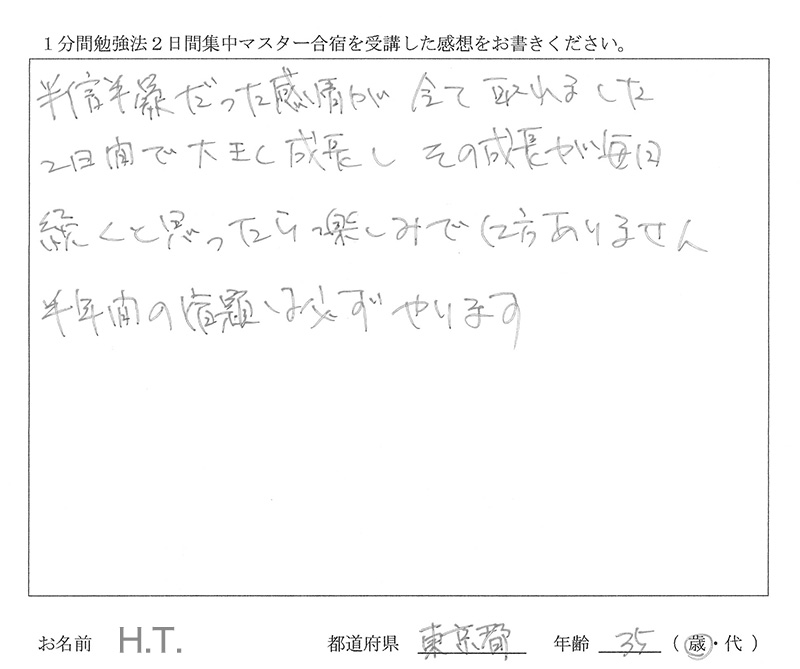 1分間勉強法2日間集中マスター合宿を受講した感想をお書きください。
半信半疑だった感情が 全て 取れました
2日間で 大きく成長し その成長が毎日
続くと思ったら楽しみで仕方ありません
半年間の宿題は必ずやります
お名前 H.T. 都道府県 東京都 年齢 35 (歳・代)